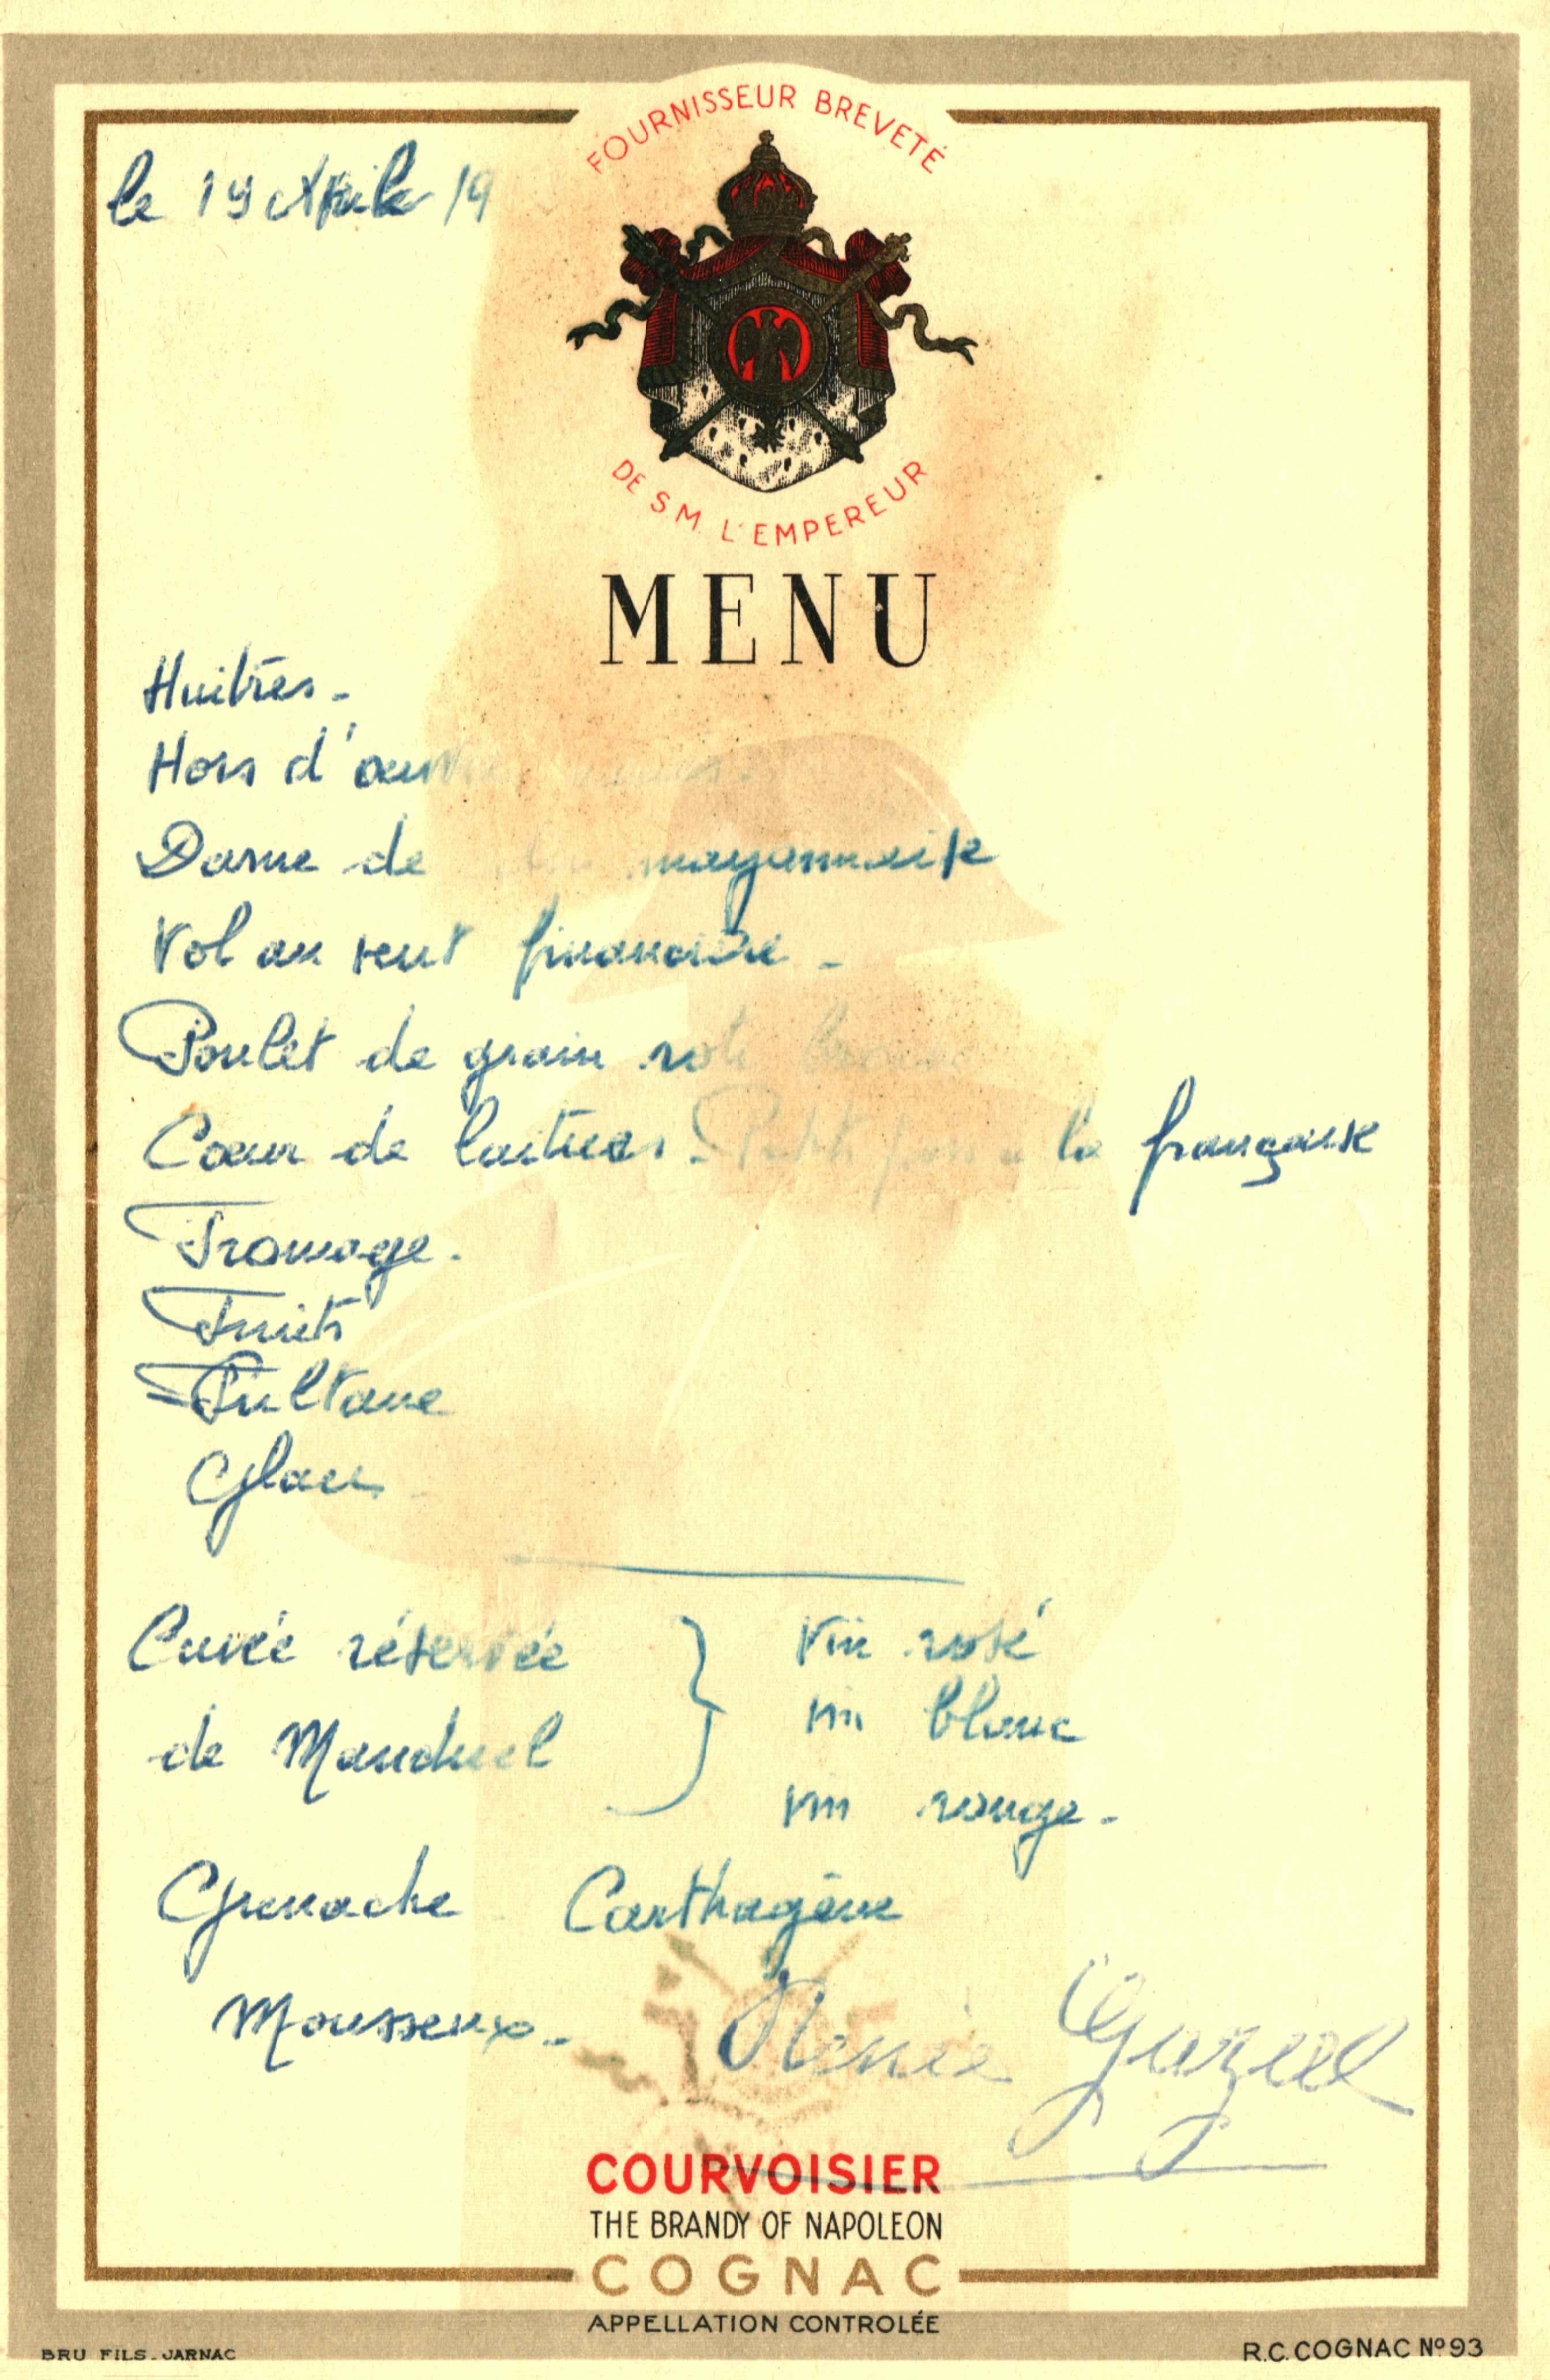 FOURNISSEUR BREVETÉ
le 19 Avril 19
DE S.M. L'EMPEREUR
MENU
Huitres -
Hors d'œuvre
Darne de mayonnaise
Vol au vent financière -
Poulet de grain roti
Cœur de laitues - Petits pois a la française
Fromage.
Fruits
Sultane
Glaces
Cuvée réservée
de Manduel
} vin rosé
vin blanc
vin rouge -
Grenache Carthagène
Mousseux - Renée Gazeel
COURVOISIER
THE BRANDY OF NAPOLEON
COGNAC
APPELLATION CONTROLÉE
BRU FILS. JARNAC
R.C. COGNAC Nº 93